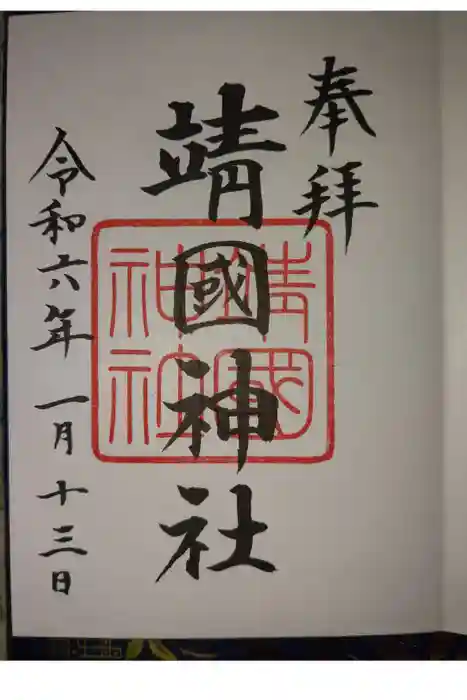 奉拝
靖國神社
靖國
神社
令和六年一月十三日